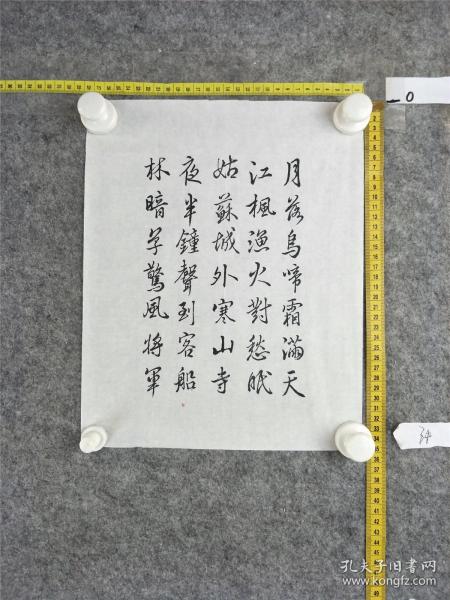 月落烏啼霜滿天
江楓漁火對愁眠
姑蘇城外寒山寺
夜半鐘聲到客船
林暗草驚風將軍
0
孔夫子旧书网
www.kongfz.com